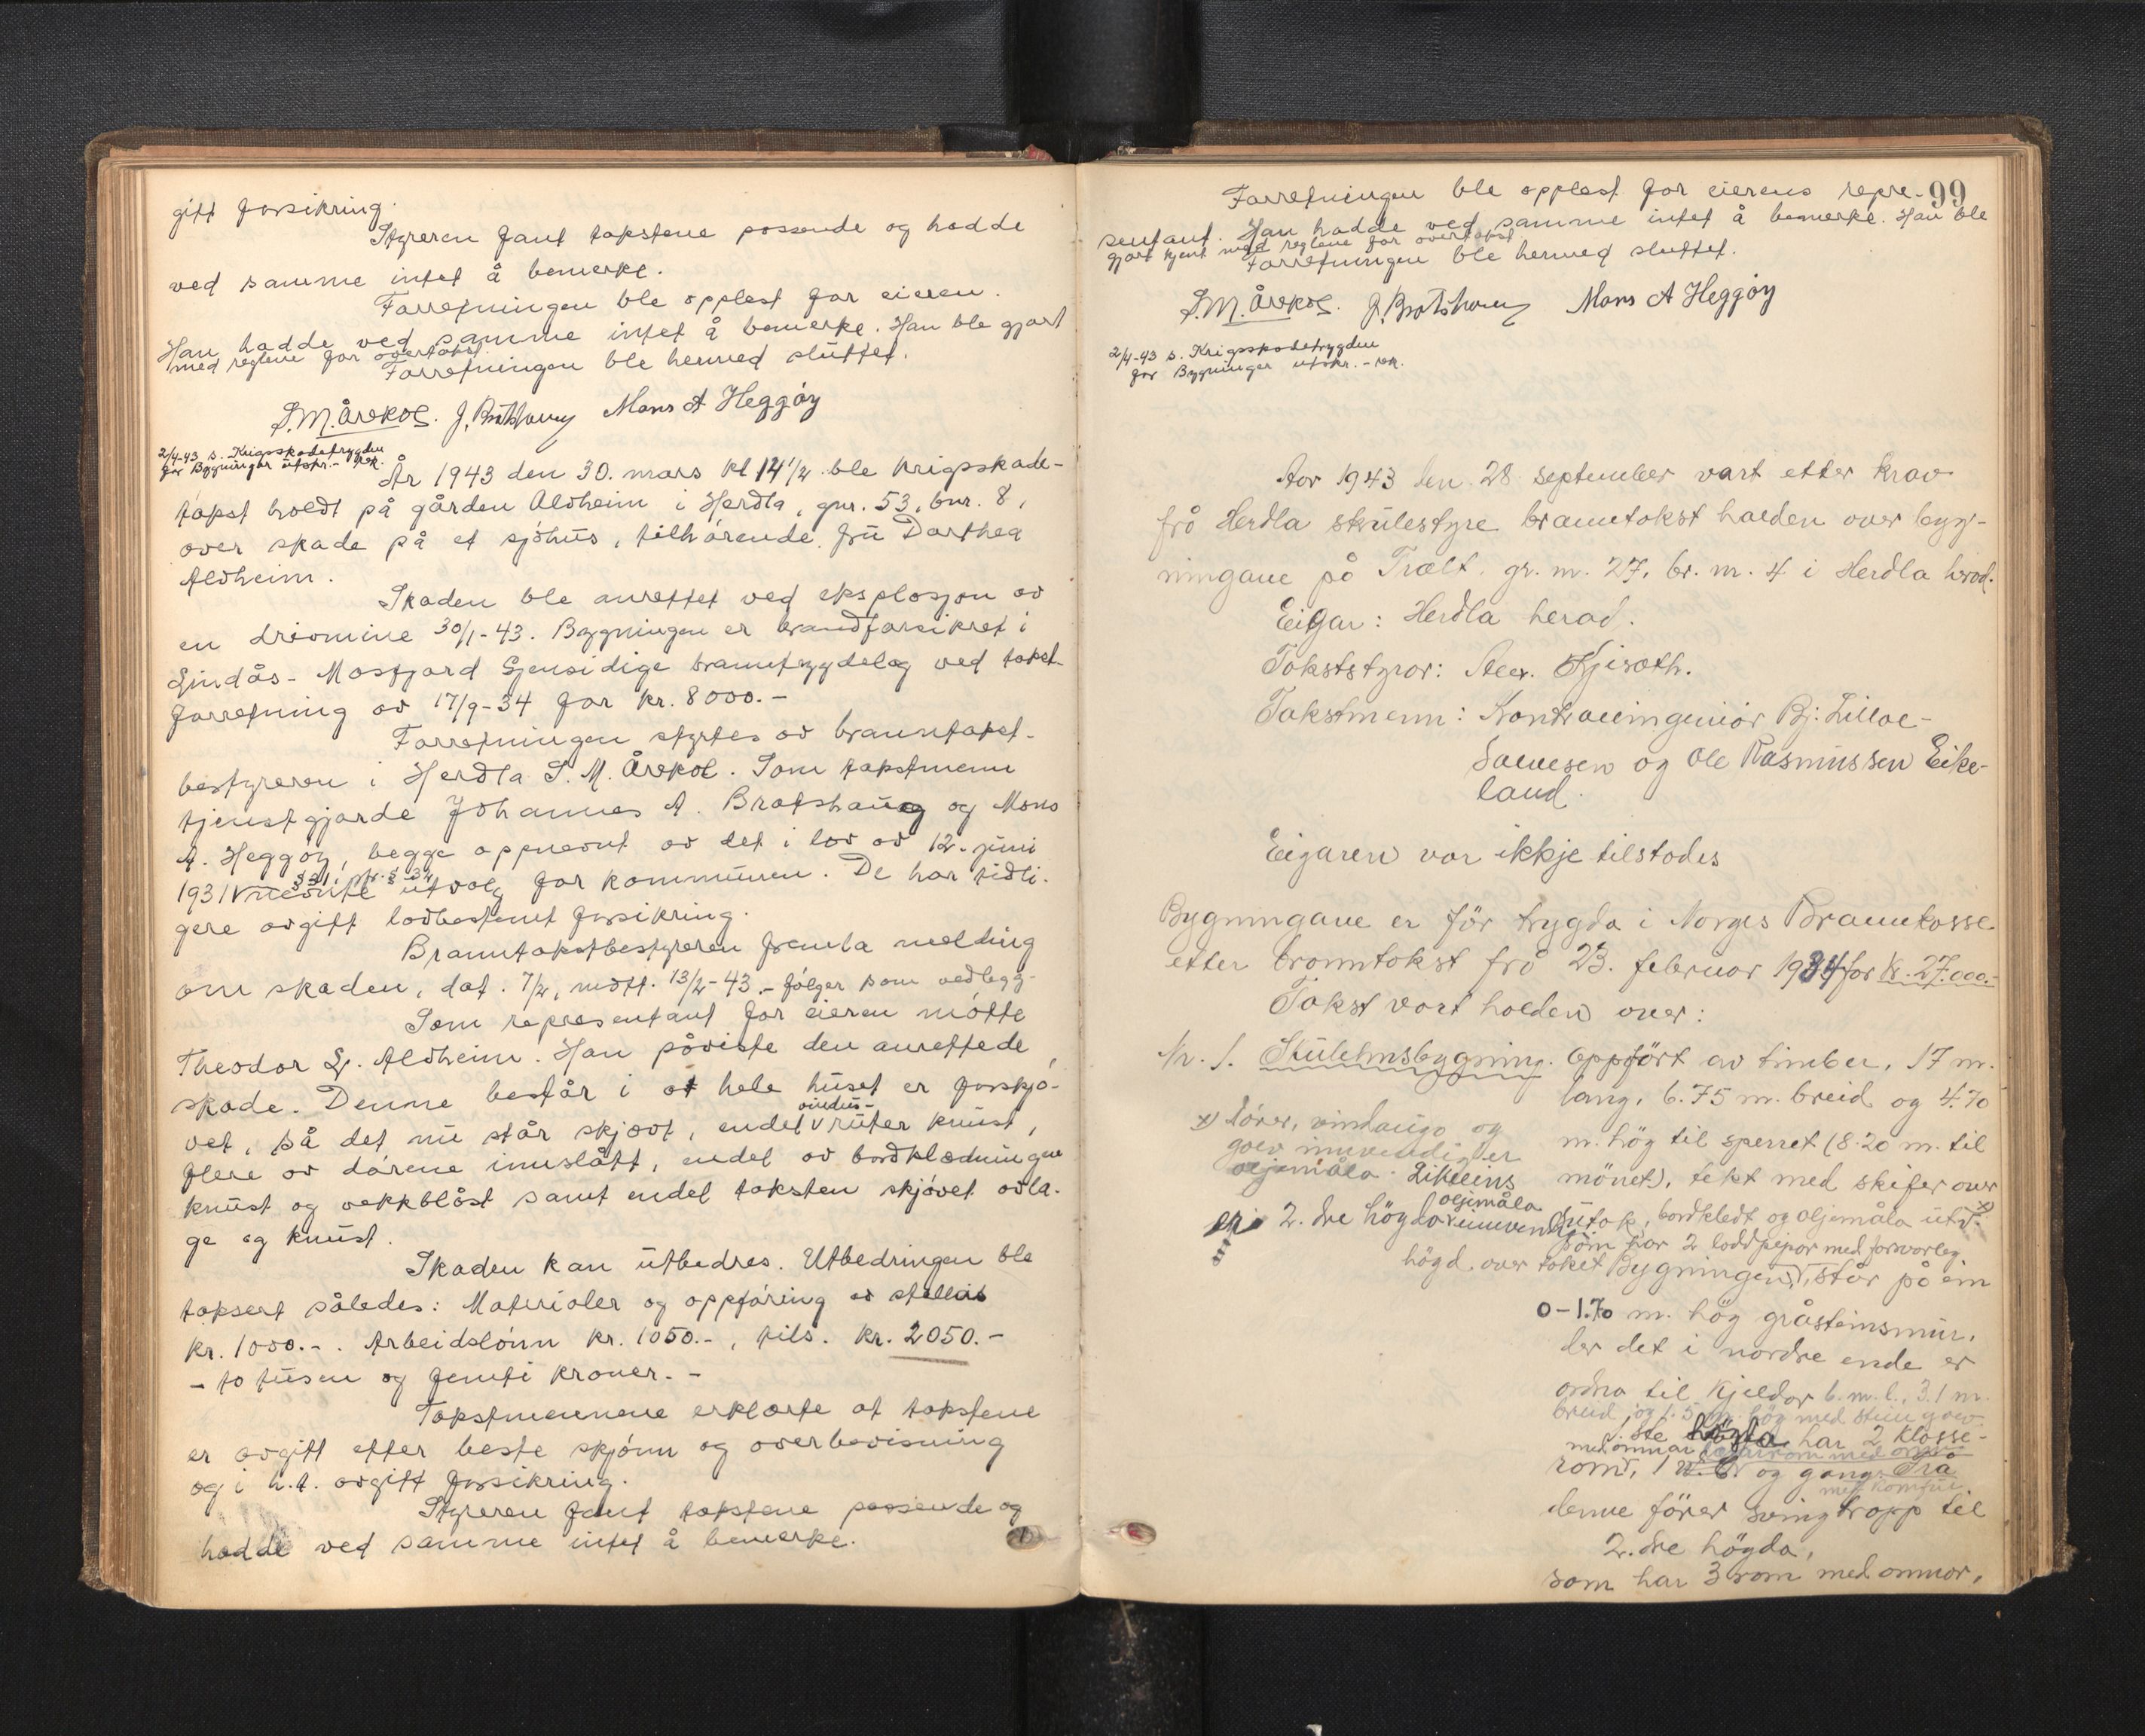 gitt forsikring.
Styreren fant takstene passende og hadde
ved samme intet å bemerke.
Forretningen ble opplest for eieren.
Han hadde ved samme intet å bemerke. Han ble gjort
med reglene for overtakst.
Forretningen ble hermed sluttet.
S.M. Årskog. J. Bratshaug Mons A Heggøy
2/4-43 s. Krigsskadetrygden
for Bygninger utskr. - rek.
År 1943 den 30. mars kl 14 1/2 ble krigsskade-
takst holdt på gården Aldheim i Herdla, gnr. 53, bnr. 8,
over skade på et sjøhus, tilhørende fru Dorthea
Aldheim.
Skaden ble anrettet ved eksplosjon av
en drivmine 30/1-43. Bygningen er brandforsikret i
Lindås-Mosfjord Gjensidige branntrygdelag ved takst-
forretning av 17/9-34 for kr. 8000.-
Forretningen styrtes av branntakst-
bestyreren i Herdla S. M. Årskog. Som takstmenn
tjenstgjorde Johannes A. Bratshaug og Mons
A. Heggøy, begge oppnevnt av det i lov av 12. juni
§ 31, jfr. § 34
1931 nevnte utvalg for kommunen. De har tidli-
gere avgitt lovbestemt forsikring.
Branntakstbestyreren fremla melding
om skaden, dat. 7/2, mott. 13/2-43.- følger som vedlegg-
Som representant for eieren møtte
Theodor L. Aldheim. Han påviste den anrettede
skade. Denne består i at hele huset er forskjø-
vet, så det nu står skjevt, endel vindus-ruter knust,
flere av dørene innslått, endel av bordkledningen
knust og vekkblåst samt endel taksten skjøvet avla-
ge og knust.
Skaden kan utbedres. Utbedringen ble
taksert således: Materialer og oppføring av stillas
kr. 1000.-. Arbeidslønn kr. 1050.-, tils. kr. 2050.-
- to tusen og femti kroner. -
Takstmennene erklærte at takstene
er avgitt efter beste skjønn og overbevisning
og i h.t. avgitt forsikring.
Styreren fant takstene passende og
hadde ved samme intet å bemerke.
99
Forretningen ble opplest for eierens repre-
sentant. Han hadde ved samme intet å bemerke. Han ble
gjort kjent med reglene for overtakst
Forretningen ble hermed sluttet.
S.M. Årskog. J. Bratshaug Mons A Heggøy
2/4-43 s. Krigsskadetrygden
for Bygninger utskr. - rek.
Aar 1943 den 28 september vart etter krav
frå Herdla skulestyre branntakst halden over byg-
ningane på Trælt. gr. nr. 27, br. nr. 4 i Herdla herad.
Eigar: Herdla herad.
Takststyrar:
Takstmenn: Kontrollingeniør Bj. Lilloe-
Salvesen og Ole Rasmussen Eike-
land.
Eigaren var ikkje tilstades
Bygningane er før trygda i Norges Brannkasse
etter branntakst frå 23. februar 1934 for kr. 27.000.-
Takst vart halden over:
Nr. 1. Skulehusbygning. Oppført av timber, 17 m.
lang, 6.75 m. breid og 4.70
m. høg til sperret (8.20 m. til
mønet), tekt med skifer over
sutak, bordkledt og oljemåla utv. x)
x) dører, vindaugo og
golv innvendig er
oljemåla. Likeleins
er i 2. dre høgda oljemåla innvendig
som har 2 loddpipor med forvarleg
høgd over taket Bygningen, står på ein
0-1.70 m. høg gråsteinsmur,
der det i nordre ende er
ordna til kjeldar 6. m. l., 3.1 m.
breid, og 1.5 m. høg med stein golv.
1. ste høgda har 2 klasse-
rom, med omnar, 1 og gang. Frå
med komfur
denne fører svingtropp til
2. dre høgda,
som har 3 rom med omnar,